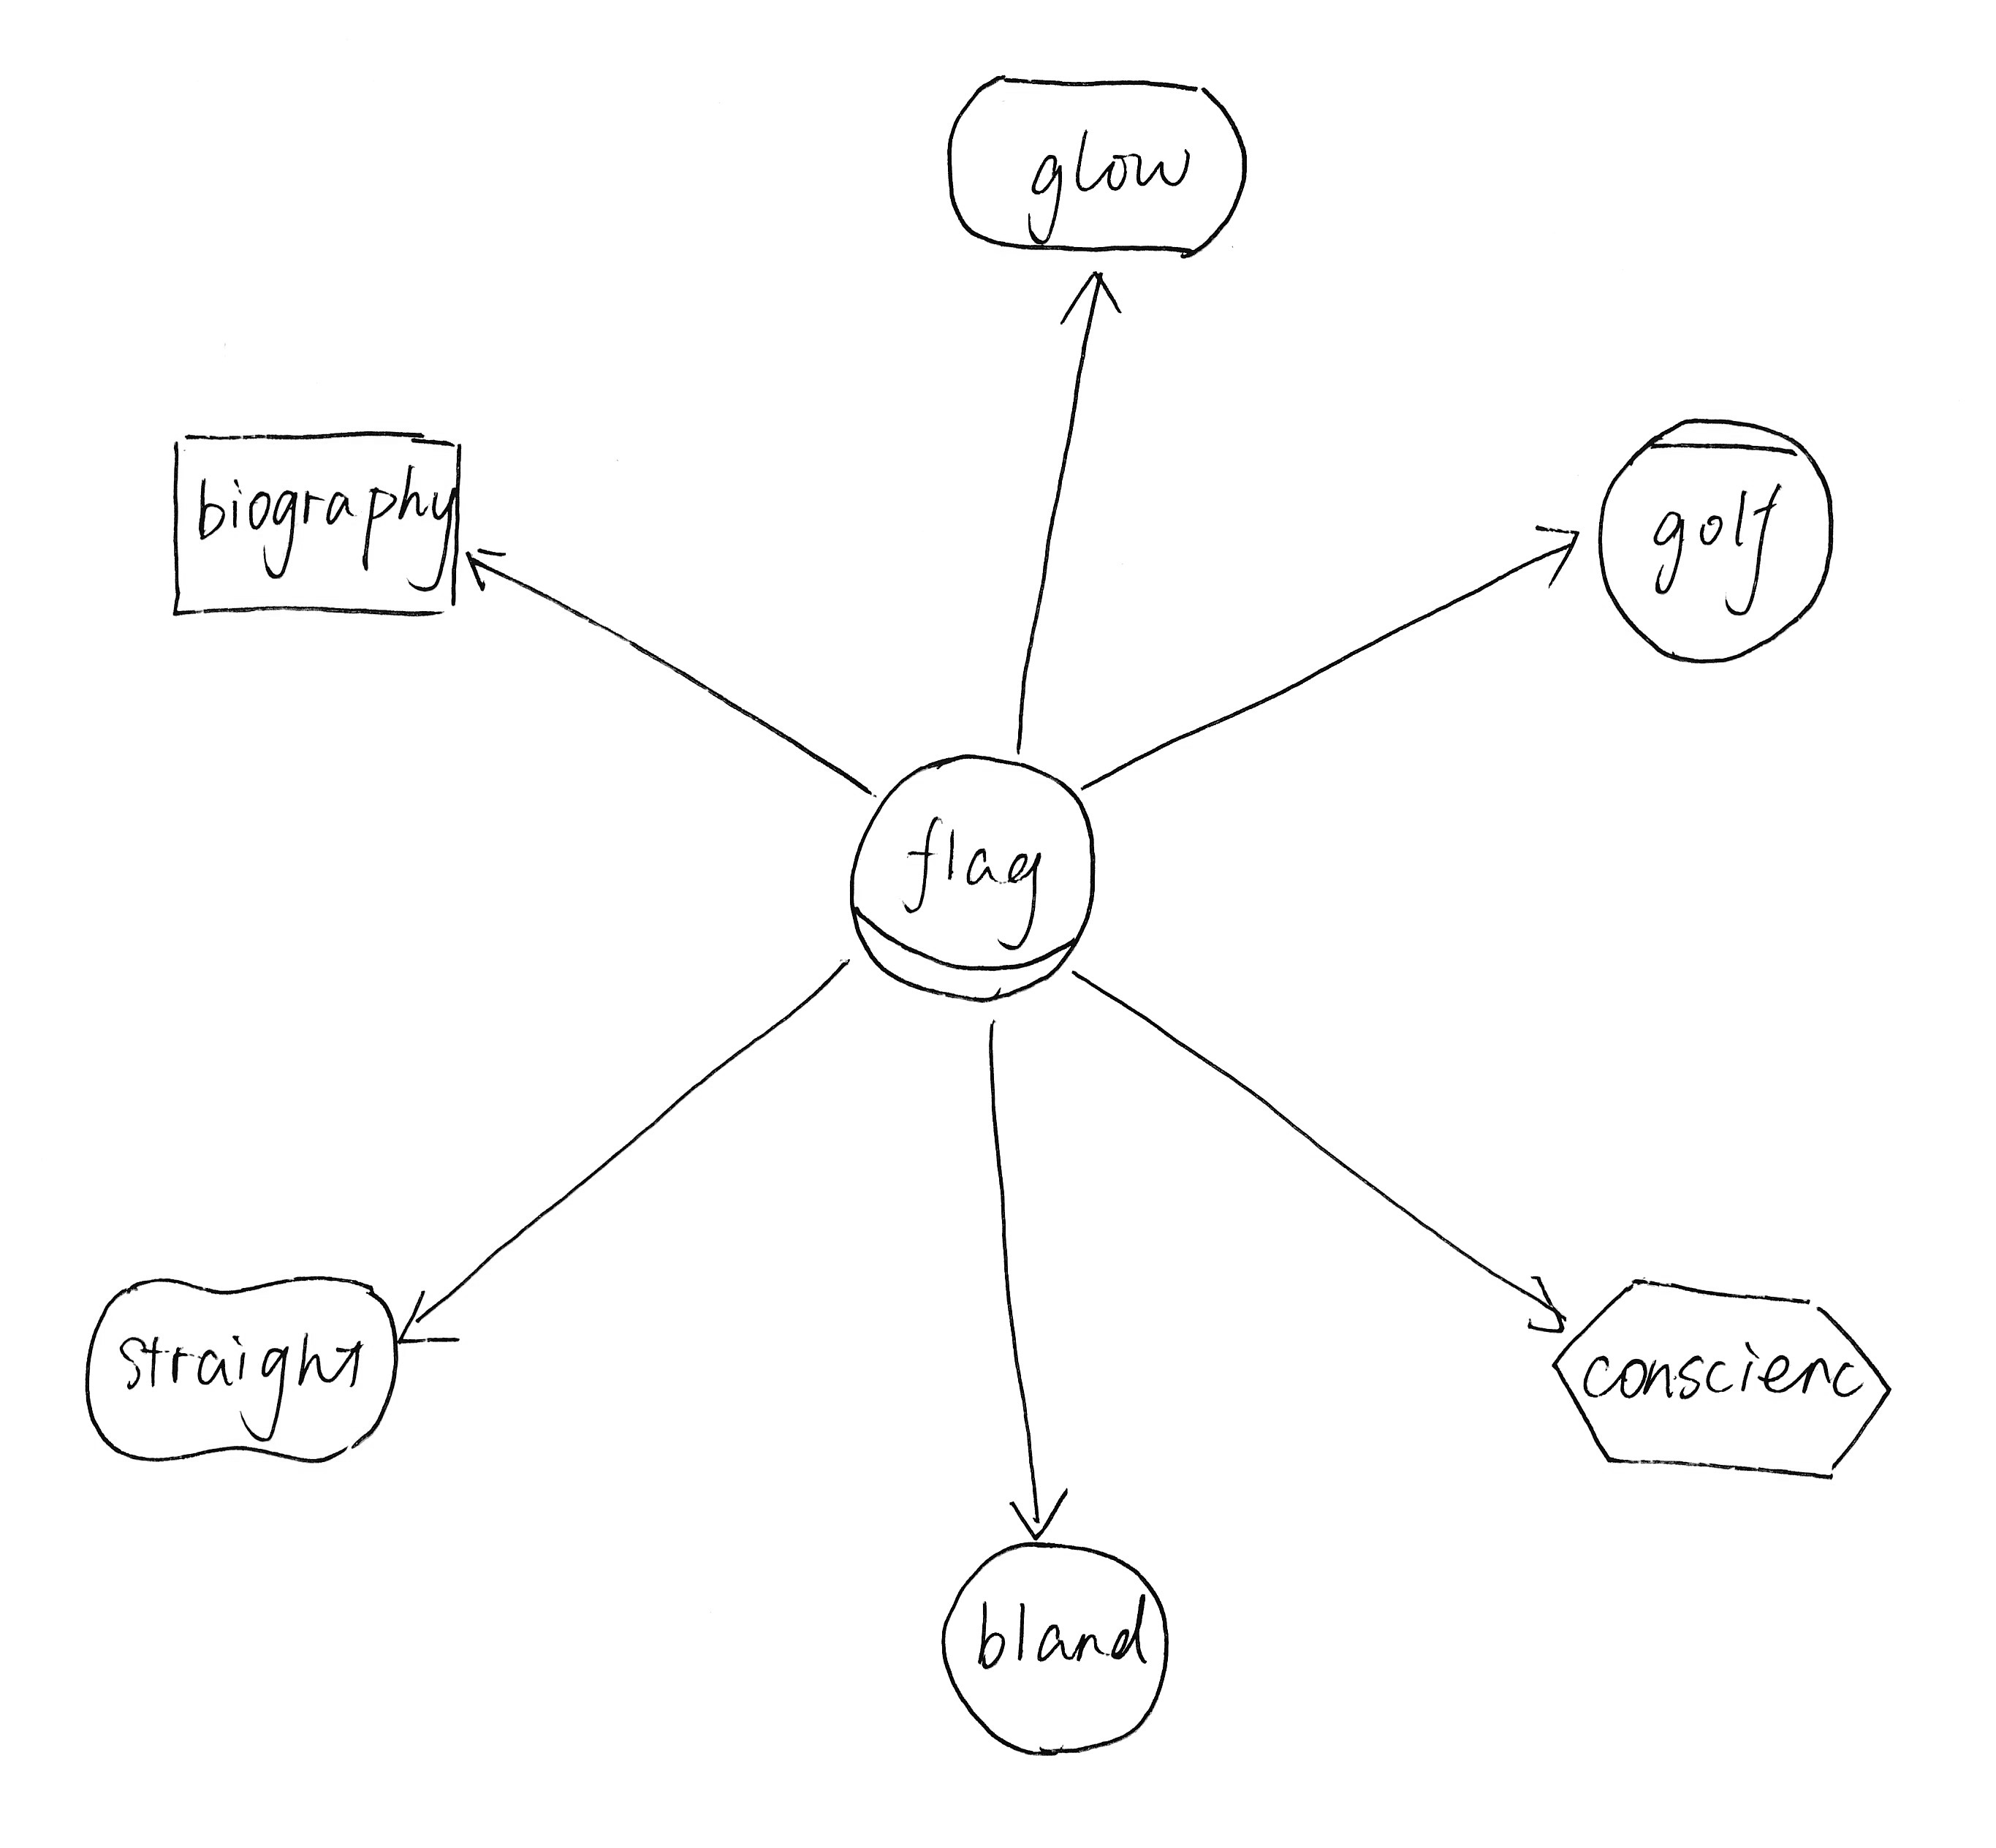 glow
biography
golf
flag
straight
conscienc
bland